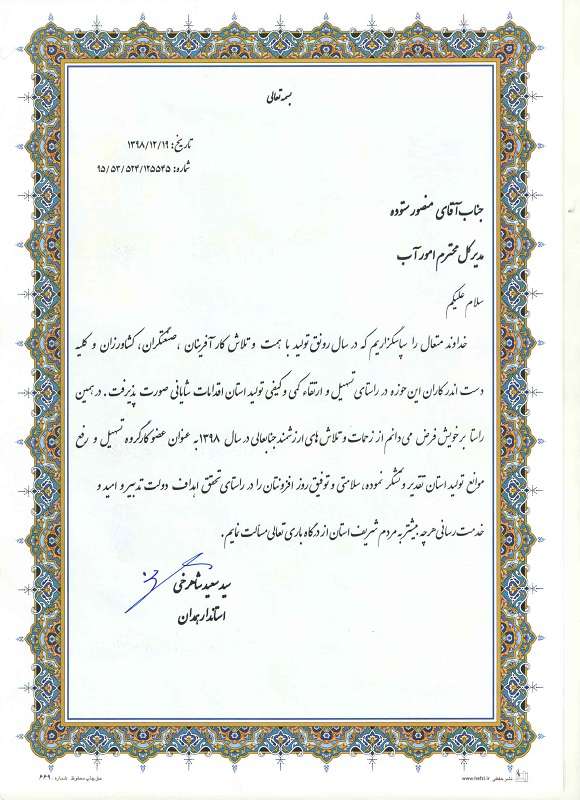 بسمه تعالی
تاریخ: ۱۳۹۸/۱۲/۱۹
شماره: ۹۵/۵۳/۵۲۴/۱۲۵۵۴۵
جناب آقای منصور ستوده
مدیر کل محترم امور آب
سلام علیکم
خداوند متعال را سپاسگزاریم که در سال رونق تولید با همت و تلاش کارآفرینان ، صنعتگران، کشاورزان و کلیه
دست اندرکاران این حوزه در راستای تسهیل و ارتقاء کمی و کیفی تولید استان اقدامات شایانی صورت پذیرفت . در همین
راستا بر خویش فرض می دانم از زحمات و تلاش های ارزشمند جنابعالی در سال ۱۳۹۸ به عنوان عضو کارگروه تسهیل و رفع
موانع تولید استان تقدیر و تشکر نموده، سلامتی و توفیق روز افزونتان را در راستای تحقق اهداف دولت تدبیر و امید و
خدمت رسانی هرچه بیشتر به مردم شریف استان از درگاه باری تعالی مسألت نمایم .
سید سعید شاهرخی
استاندار همدان
نشر هفتی www.hefti.ir
حق چاپ محفوظ شماره ۶۶۹